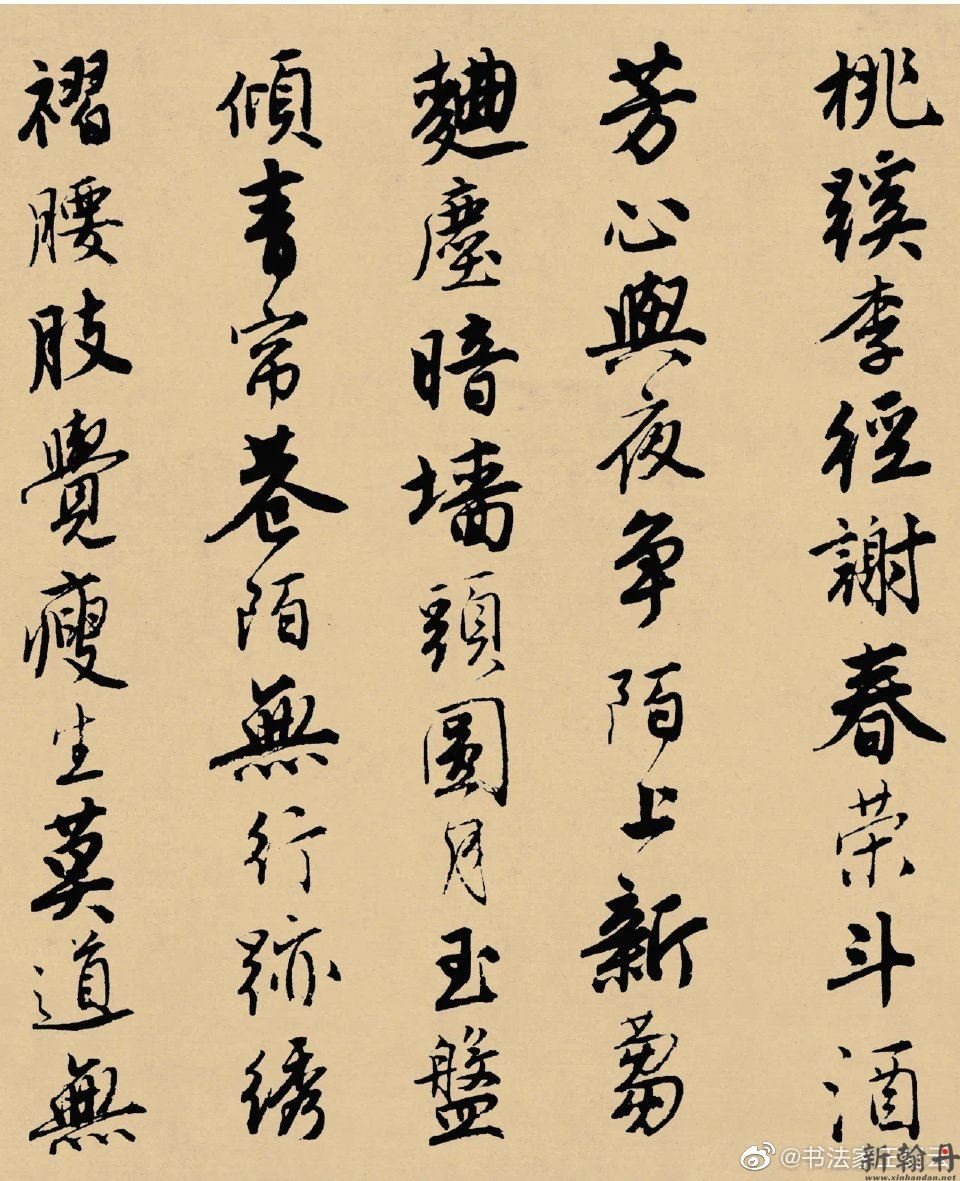 桃蹊李徑謝春荣斗酒
芳心與夜争陌上新蒭
麯塵暗墙頭圓月玉盤
傾青帘巷陌無行跡綉
褶腰肢覺瘦生莫道無
@书法家庄
新翰丹
www.xinhandan.net